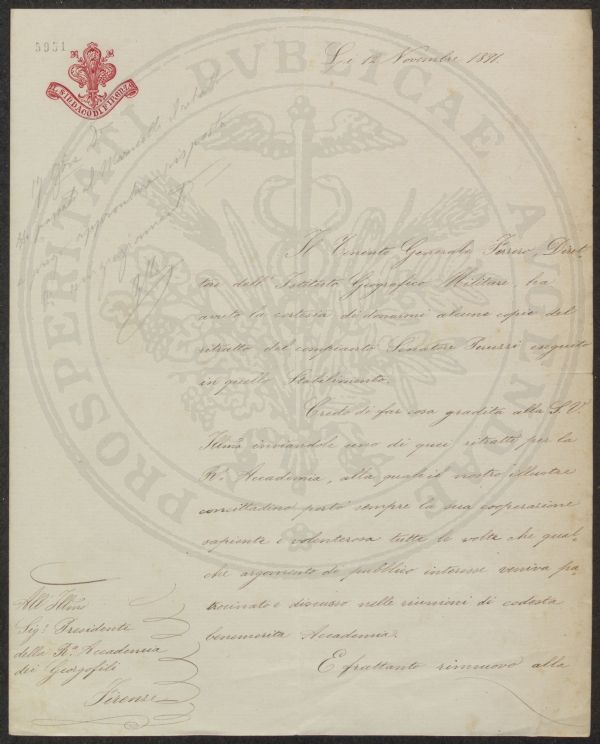 5951
IL SINDACO DI FIRENZE
Li 12 Novembre 1891.
PROSPERITATI PUBLICAE AUGENDAE
Il Tenente Generale Ferrero, Diret-
tore dell' Istituto Geografico Militare, ha
avuto la cortesia di donarmi alcune copie del
ritratto del compianto Senatore Peruzzi eseguito
in quello Stabilimento.
Credo di far cosa gradita alla S. V.
Illma inviandole uno di quei ritratti per la
Ra. Accademia, alla quale il nostro illustre
concittadino portò sempre la sua cooperazione
sapiente e volenterosa tutte le volte che qual-
che argomento di pubblico interesse veniva pa-
trocinato e discusso nelle riunioni di codesta
benemerita Accademia.
E frattanto rinnuovo alla
All' Illmo
Sigr. Presidente
della Ra. Accademia
dei Georgofili
Firenze